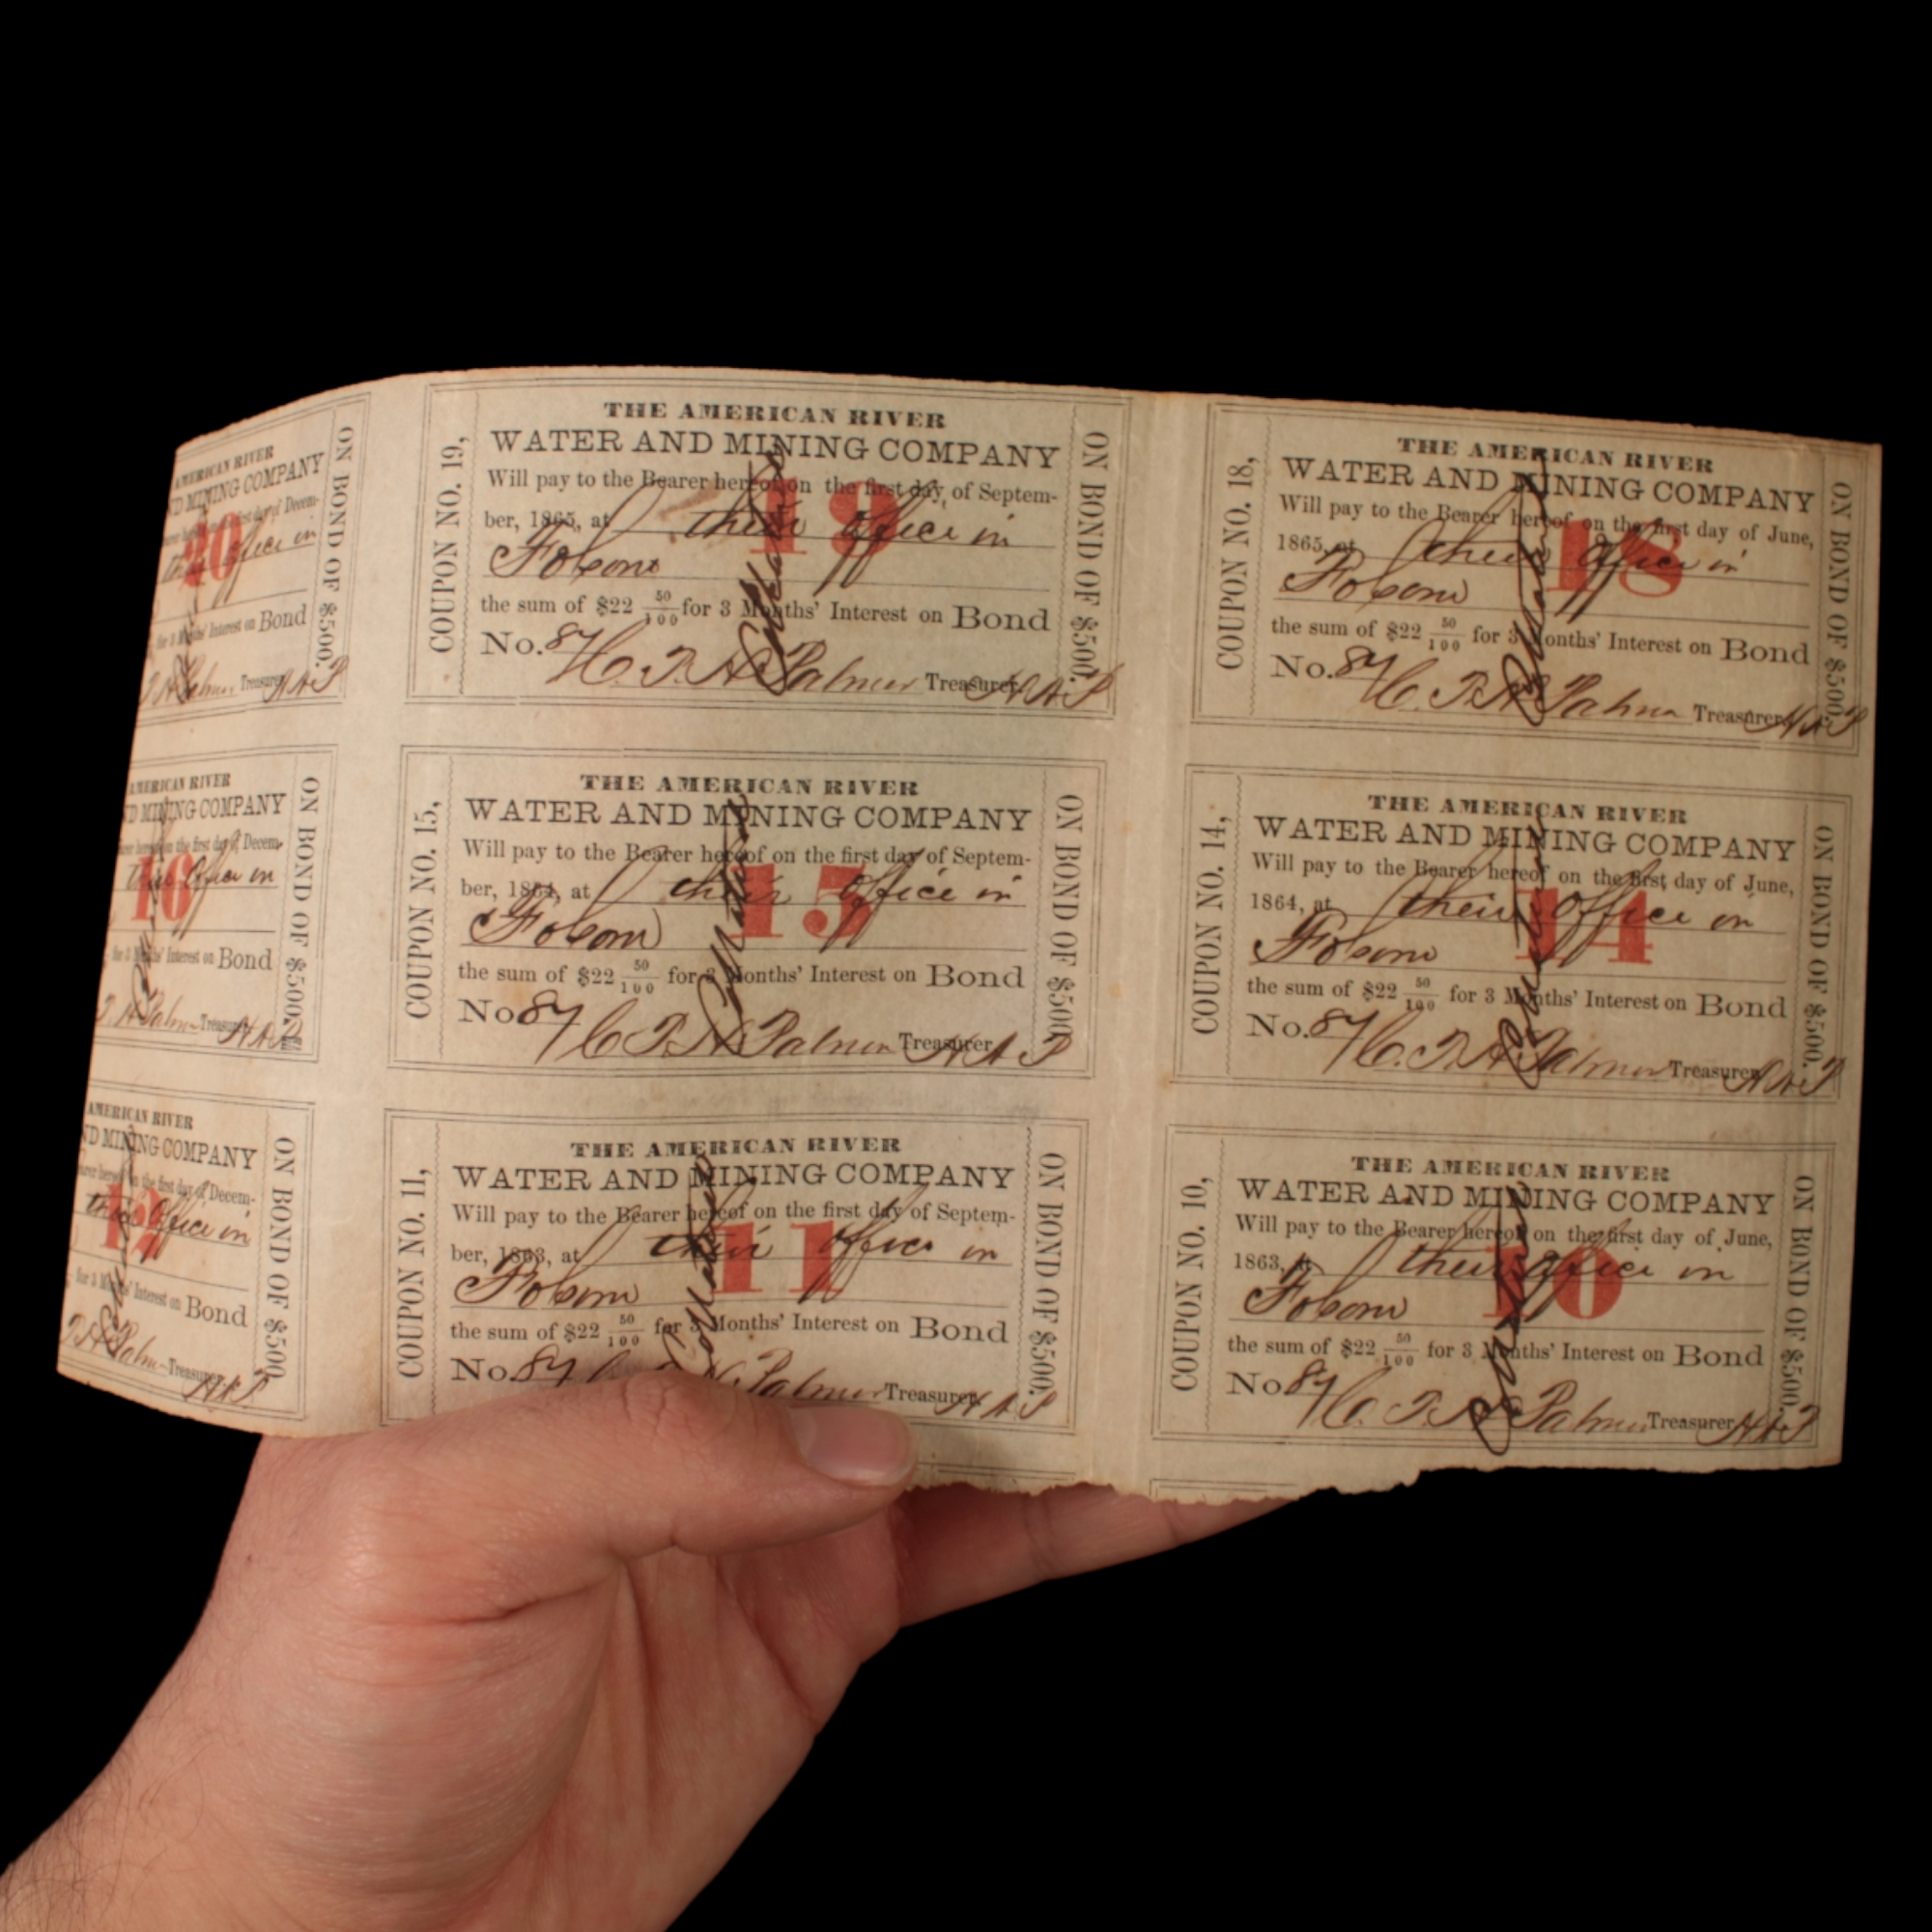 AMERICAN RIVER
ND MINING COMPANY
first day of Decem-
their office in
20
for 3 Months' Interest on Bond
Treasurer H A P
ON BOND OF $500.
COUPON NO. 19,
THE AMERICAN RIVER
WATER AND MINING COMPANY
Will pay to the Bearer hereof on the first day of Septem-
ber, 1865, at their office in
19
Folsom
the sum of $22 50/100 for 3 Months' Interest on Bond
No. 87 C. T. H. Palmer Treasurer H A P
ON BOND OF $500.
COUPON NO. 18,
THE AMERICAN RIVER
WATER AND MINING COMPANY
Will pay to the Bearer hereof on the first day of June,
1865, at their office in
18
Folsom
the sum of $22 50/100 for 3 Months' Interest on Bond
No. 87 C. T. H. Palmer Treasurer H A P
ON BOND OF $500.
AMERICAN RIVER
ND MINING COMPANY
on the first day of Decem-
their office in
16
for 3 Months' Interest on Bond
T. H. Palmer Treasurer H A P
ON BOND OF $500.
COUPON NO. 15,
THE AMERICAN RIVER
WATER AND MINING COMPANY
Will pay to the Bearer hereof on the first day of Septem-
ber, 1864, at their office in
15
Folsom
the sum of $22 50/100 for 3 Months' Interest on Bond
No 87 C. T. H. Palmer Treasurer H A P
ON BOND OF $500.
COUPON NO. 14,
THE AMERICAN RIVER
WATER AND MINING COMPANY
Will pay to the Bearer hereof on the first day of June,
1864, at their office in
14
Folsom
the sum of $22 50/100 for 3 Months' Interest on Bond
No. 87 C. T. H. Palmer Treasurer H A P
ON BOND OF $500.
AMERICAN RIVER
ND MINING COMPANY
on the first day of Decem-
their office in
12
for 3 Months' Interest on Bond
T. H. Palmer Treasurer H A P
ON BOND OF $500.
COUPON NO. 11,
THE AMERICAN RIVER
WATER AND MINING COMPANY
Will pay to the Bearer hereof on the first day of Septem-
ber, 1863, at their office in
11
Folsom
the sum of $22 50/100 for 3 Months' Interest on Bond
No. 87 H. Palmer Treasurer H A P
ON BOND OF $500.
COUPON NO. 10,
THE AMERICAN RIVER
WATER AND MINING COMPANY
Will pay to the Bearer hereof on the first day of June,
1863, at their office in
10
Folsom
the sum of $22 50/100 for 3 Months' Interest on Bond
No 87 C. T. H. Palmer Treasurer H A P
ON BOND OF $500.